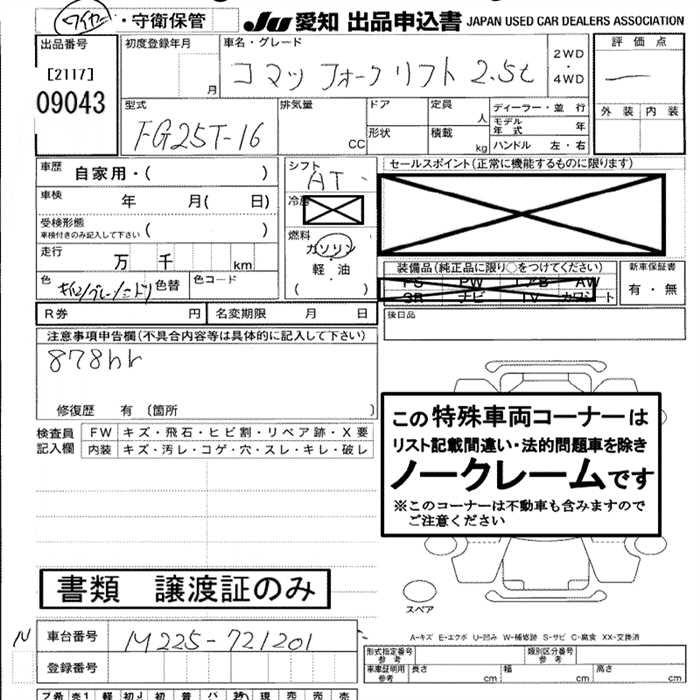 ワイヤー・守衛保管
JU 愛知 出品申込書 JAPAN USED CAR DEALERS ASSOCIATION
出品番号
[2117]
09043
初度登録年月
月
車名・グレード
コマツ フォークリフト 2.5t
2WD
・
4WD
評価点
外装 内装
型式
FG25T-16
排気量
CC
ドア
形状
定員
人
積載
kg
ディーラー・並行
モデル年式 年
ハンドル 左・右
車歴
自家用・( )
車検 年 月( 日)
受検形態
車検付きのみ記入して下さい ( )
走行 万 千 km
色 色替 色コード
シフト
AT
冷房
燃料
ガソリン
・
軽・油
( )
セールスポイント(正常に機能するものに限ります)
装備品(純正品に限り○をつけてください)
PS PW エアB AW
SR ナビ TV カワシート
新車保証書
有・無
R券 円 名変期限 月 日
後日品
注意事項申告欄(不具合内容等は具体的に記入して下さい)
878hr
修復歴 有 〔箇所 〕
検査員
記入欄
FW キズ・飛石・ヒビ割・リペア跡・X要
内装 キズ・汚レ・コゲ・穴・スレ・キレ・破レ
この特殊車両コーナーは
リスト記載間違い・法的問題車を除き
ノークレームです
※このコーナーは不動車も含みますので
ご注意ください
書類 譲渡証のみ
スペア
A-キズ E-エクボ U-凹み W-補修跡 S-サビ C-腐食 XX-交換済
N 車台番号 M225-721201
登録番号
形式指定番号
参考
類別区分番号
参考
車庫証明用
参考
長さ cm 幅 cm 高さ cm